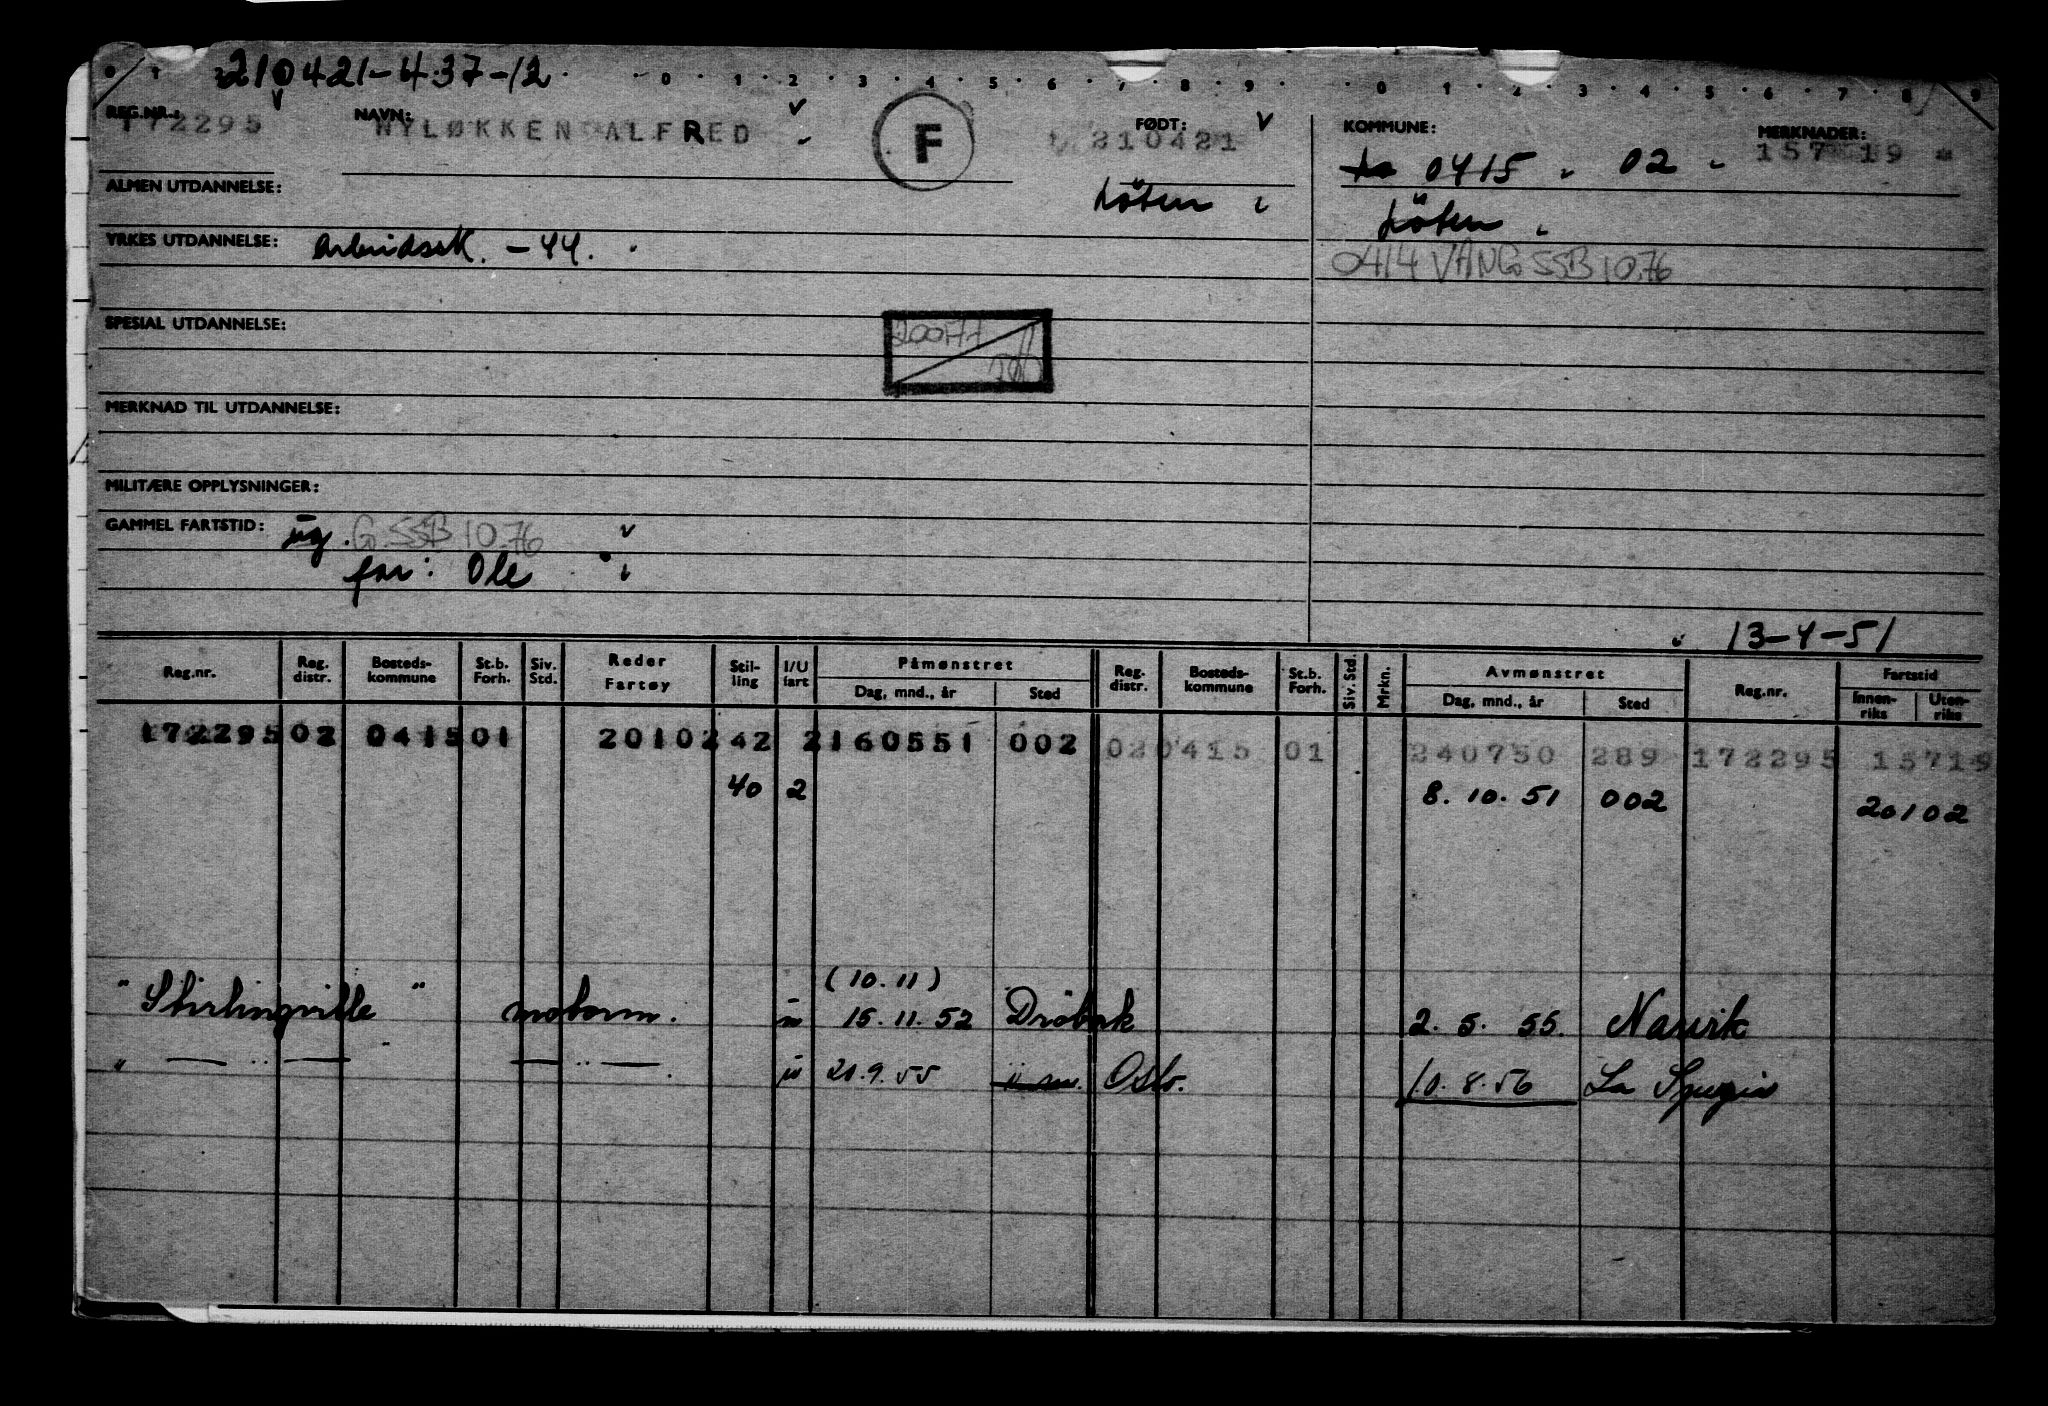 210421-437-12
REG.NR.: 172295 NAVN: NYLØKKEN ALFRED F FØDT: 210421 KOMMUNE: MERKNADER: 157 19
0415 02
ALMEN UTDANNELSE: Löten
Löten
YRKES UTDANNELSE: Arbeidssk. - 44.
0414 VANG SSB 10.76
SPESIAL UTDANNELSE:
MERKNAD TIL UTDANNELSE:
MILITÆRE OPPLYSNINGER:
GAMMEL FARTSTID: ug. G. SSB 10.76
far: Ole
13-4-51
Reg.nr. Reg. distr. Bosteds-kommune St.b. Forh. Siv. Std. Reder Fartøy Stil-ling I/U fart Påmønstret Dag, mnd., år Sted Reg. distr. Bosteds-kommune St.b. Forh. Siv. Std. Mrkn. Avmønstret Dag, mnd., år Sted Reg.nr. Fartstid Innen-riks Uten-riks
172295 02 0415 01 20102 42 2 160551 002 02 0415 01 240750 289 172295 15719
40 2 8.10.51 002 20102
(10.11)
"Stirlingville" motorm. u 15.11.52 Dröbak 2.5.55. Narvik
" — " — — " — . u 21.9.55 Oslo. 10.8.56 La Spezia